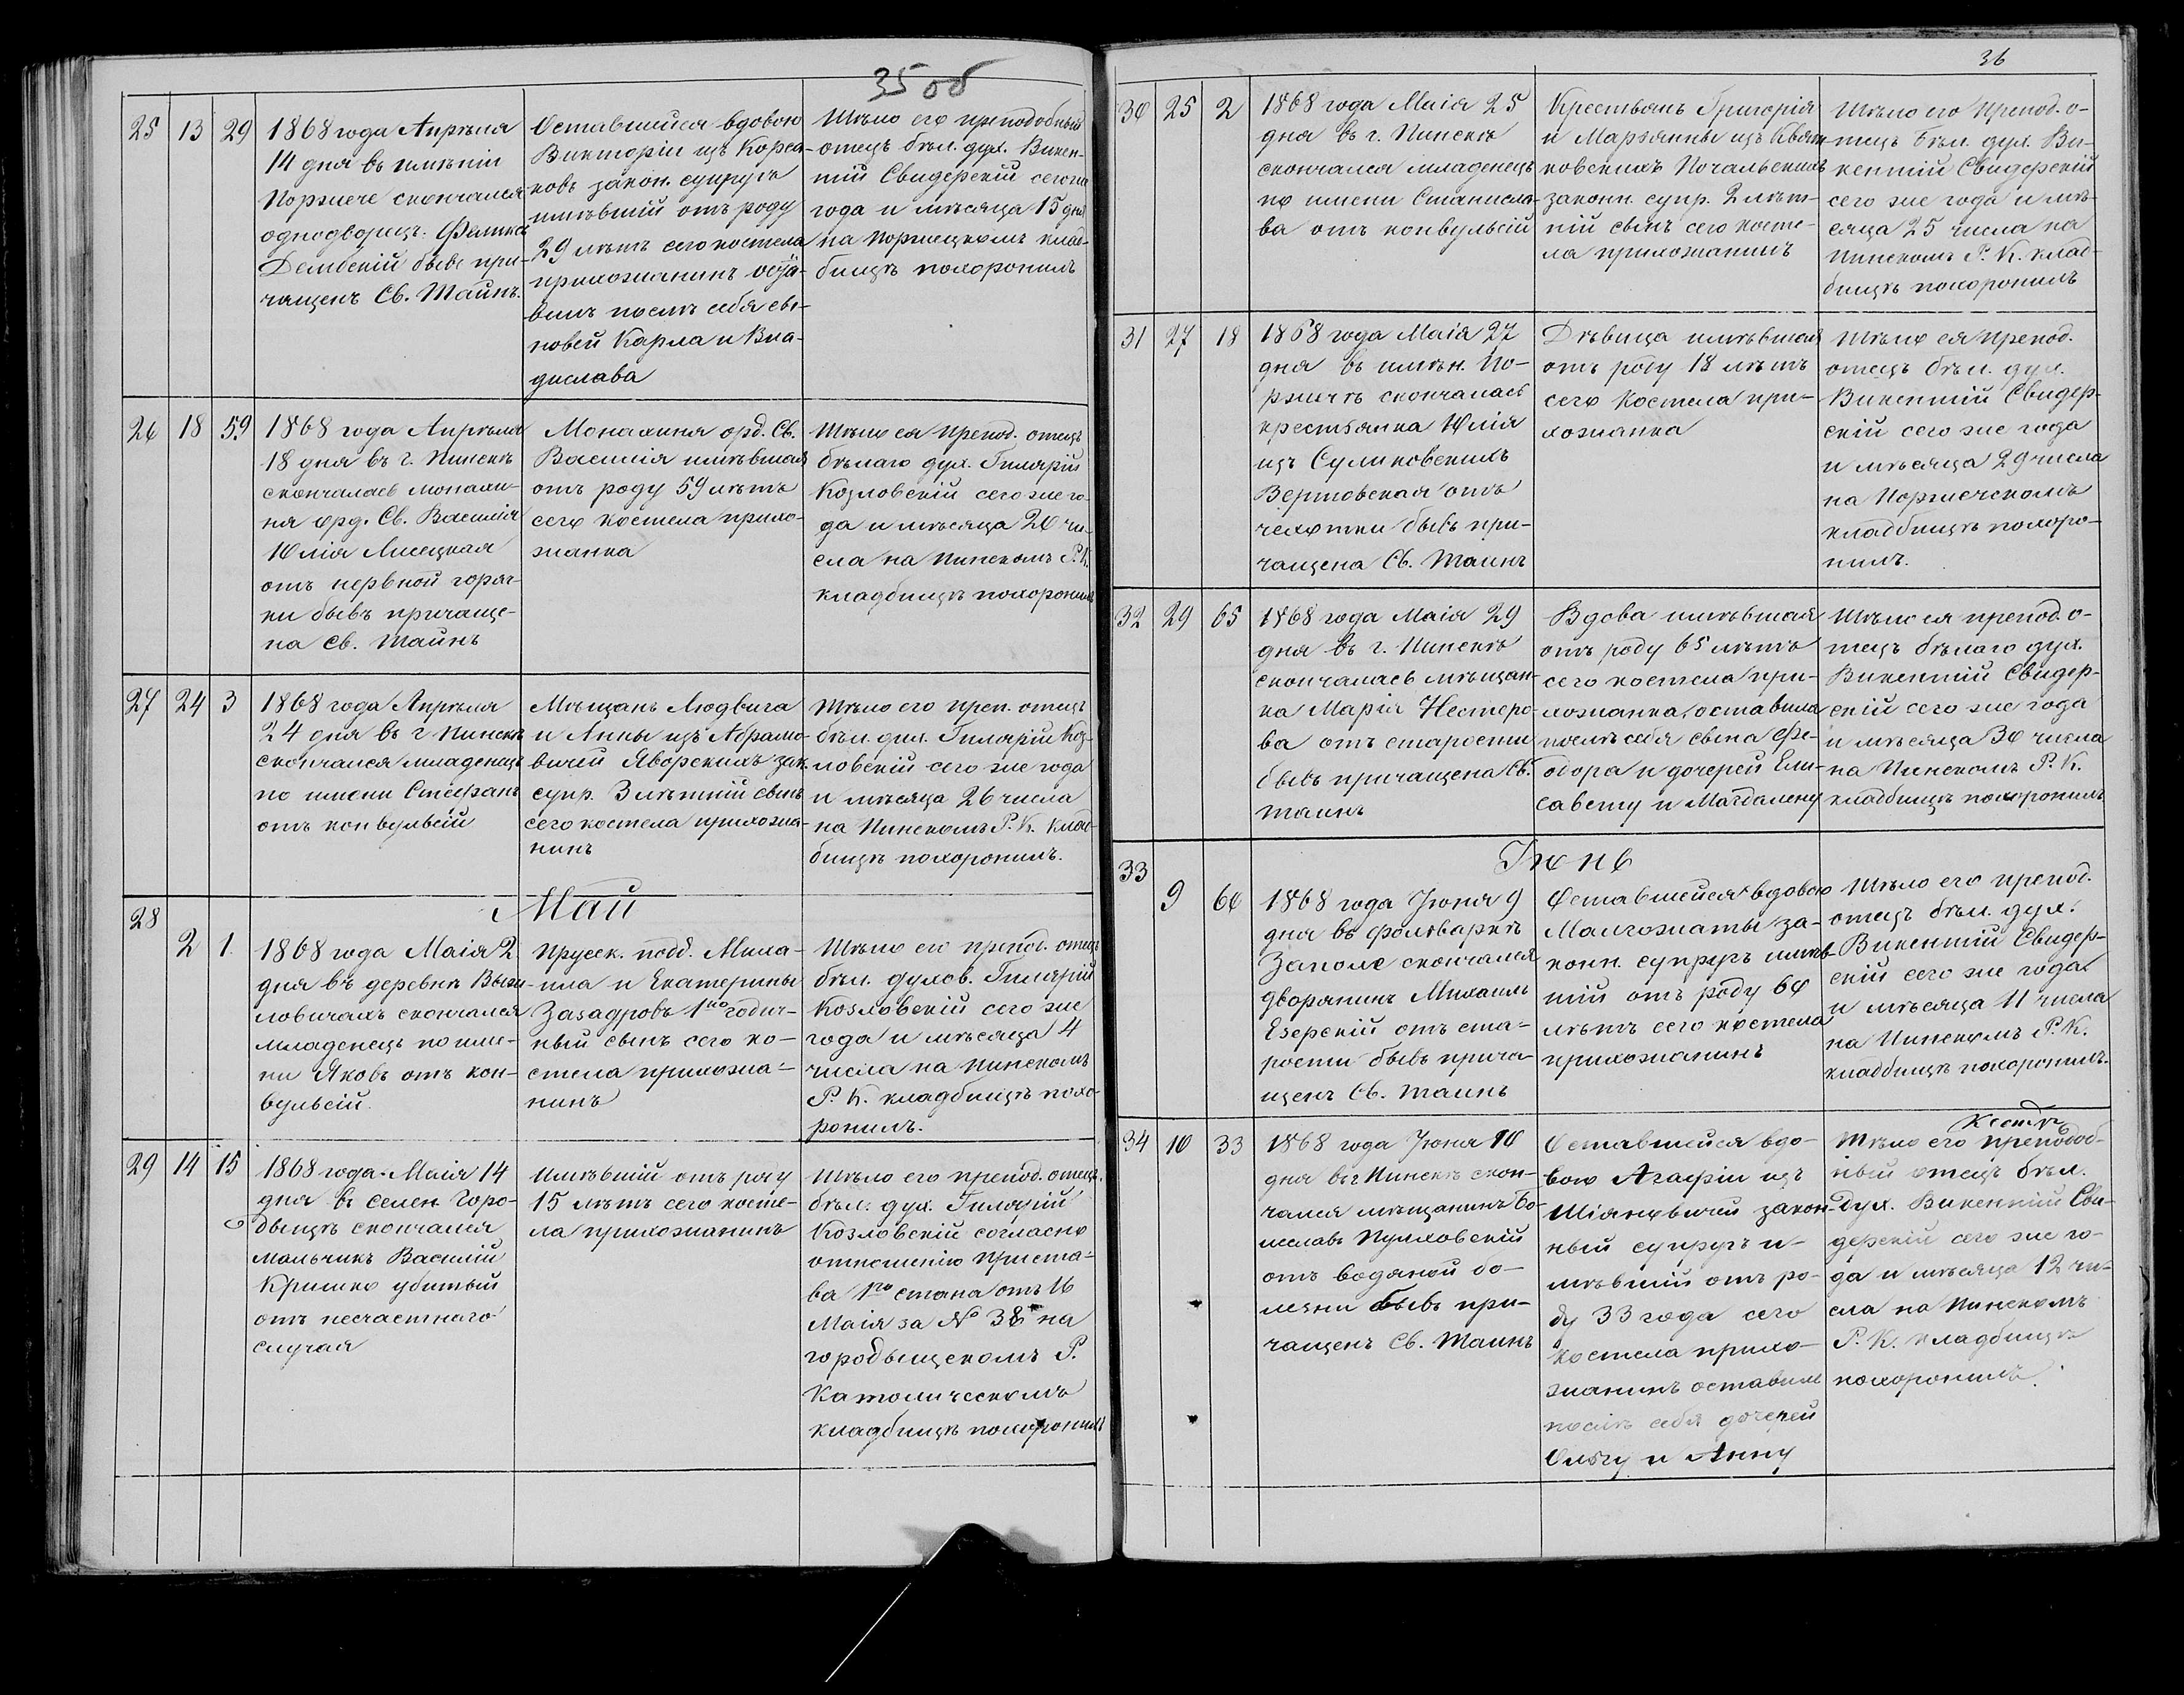 35 об
25 13 29
1868 года Апрѣля
14 дня въ имѣніи
Поржече скончался
однодворецъ Феликсъ
Дембскій бывъ при-
чащенъ Св. Таинъ.
Оставшейся вдовою
Викторіи изъ Корса-
ковъ закон. супругъ
имѣвшій отъ роду
29 лѣтъ сего костела
прихожанинъ оста-
вилъ послѣ себя сы-
новей Карла и Вла-
дислава
Тѣло его преподобный
отецъ бѣл. дух. Викен-
тій Свидерскій сего же
года и мѣсяца 15 дня
на Поржецкомъ клад-
бищѣ похоронилъ
26 18 59
1868 года Апрѣля
18 дня въ г. Пинскѣ
скончалась монахи-
ня орд. Св. Василія
Юлія Лисецкая
отъ нервной горяч-
ки бывъ причаще-
на Св. Таинъ
Монахиня орд. Св.
Василія имѣвшая
отъ роду 59 лѣтъ
сего костела прихо-
жанка
Тѣло ея препод. отецъ
бѣлаго дух. Гилярій
Козловскій сего же го-
да и мѣсяца 20 чи-
сла на Пинскомъ Р. К.
кладбищѣ похоронилъ
27 24 3
1868 года Апрѣля
24 дня въ г Пинскѣ
скончался младенецъ
по имени Стефанъ
отъ конвульсій
Мѣщанъ Людвига
и Анны изъ Абрамо-
вичей Яворскихъ зак.
супр. 3 лѣтній сынъ
сего костела прихожа-
нинъ
Тѣло его преп. отецъ
бѣл. дух. Гилярій Коз-
ловскій сего же года
и мѣсяца 26 числа
на Пинскомъ Р. К. клад-
бищѣ похоронилъ.
Май
28
2 1.
1868 года Маія 2
дня въ деревнѣ Выжи-
ловичахъ скончался
младенецъ по име-
ни Яковъ отъ кон-
вульсій.
Прусск. подд. Миха-
ила и Екатерины
Зазадровъ 1но годич-
ный сынъ сего ко-
стела прихожа-
нинъ
Тѣло его препод. отецъ
бѣл. духов. Гилярій
Козловскій сего же
года и мѣсяца 4
числа на Пинскомъ
Р. К. кладбищѣ похо-
ронилъ.
29 14 15
1868 года Маія 14
дня въ селен. Горо-
дыщѣ скончался
мальчикъ Василій
Кришко убитый
отъ несчастнаго
случая
Имѣвшій отъ роду
15 лѣтъ сего косте-
ла прихожанинъ
Тѣло его препод. отецъ
бѣл. дух. Гилярій
Козловскій согласно
отношенію приста-
ва 1го стана отъ 16
Маія за № 38 на
городыщскомъ Р.
Католическомъ
кладбищѣ похоронилъ
36
30 25 2
1868 года Маія 25
дня въ г. Пинскѣ
скончался младенецъ
по имени Станисла-
ва отъ конвульсій
Крестьянъ Григорія
и Марьянны изъ Квят-
ковскихъ Почальскихъ
законн. супр. 2 лѣт-
ній сынъ сего косте-
ла прихожанинъ
Тѣло его препод. о-
тецъ бѣл. дух. Ви-
кентій Свидерскій
сего же года и мѣ-
сяца 25 числа на
Пинскомъ Р. К. клад-
бищѣ похоронилъ
31 27 18
1868 года Маія 27
дня въ имѣн. По-
ржичѣ скончалась
крестьянка Юлія
изъ Суликовскихъ
Вертовская отъ
чехотки бывъ при-
чащена Св. Таинъ
Дѣвица имѣвшая
отъ роду 18 лѣтъ
сего костела при-
хожанка
Тѣло ея препод.
отецъ бѣл. дух.
Викентій Свидер-
скій сего же года
и мѣсяца 29 числа
на Поржечскомъ
кладбищѣ похоро-
нилъ.
32 29 65
1868 года Маія 29
дня въ г. Пинскѣ
скончалась мѣщан-
ка Марія Нестеро-
ва отъ старости
бывъ причащена Св.
Таинъ
Вдова имѣвшая
отъ роду 65 лѣтъ
сего костела при-
хожанка, оставила
послѣ себя сына Фе-
одора и дочерей Ели-
савету и Магдалену
Тѣло ея препод. о-
тецъ бѣлаго дух.
Викентій Свидер-
скій сего же года
и мѣсяца 30 числа
на Пинскомъ Р. К.
кладбищѣ похоронилъ
Іюнь
33
9 60
1868 года Іюня 9
дня въ фольваркѣ
Заполе скончался
дворянинъ Михаилъ
Езерскій отъ ста-
рости бывъ прича-
щенъ Св. Таинъ
Оставшейся вдовою
Малгожаты за-
конн. супругъ имѣв-
шій отъ роду 60
лѣтъ сего костела
прихожанинъ
Тѣло его препод.
отецъ бѣл. дух.
Викентій Свидер-
скій сего же года
и мѣсяца 11 числа
на Пинскомъ Р. К.
кладбищѣ похоронилъ.
34 10 33
1868 года Іюня 10
дня въ г Пинскѣ скон-
чался мѣщанинъ Бо-
леславъ Пуховскій
отъ водяной бо-
лезни бывъ при-
чащенъ Св. Таинъ
Оставшейся вдо-
вою Агафіи изъ
Шіяновичей закон-
ный супругъ и-
мѣвшій отъ ро-
ду 33 года сего
костела прихо-
жанинъ оставилъ
послѣ себя дочерей
Ольгу и Анну
Тѣло его преподоб-
ный отецъ бѣл.
дух. Викентій Сви-
дерскій сего же го-
да и мѣсяца 12 чи-
сла на Пинскомъ
Р. К. кладбищѣ
похоронилъ.